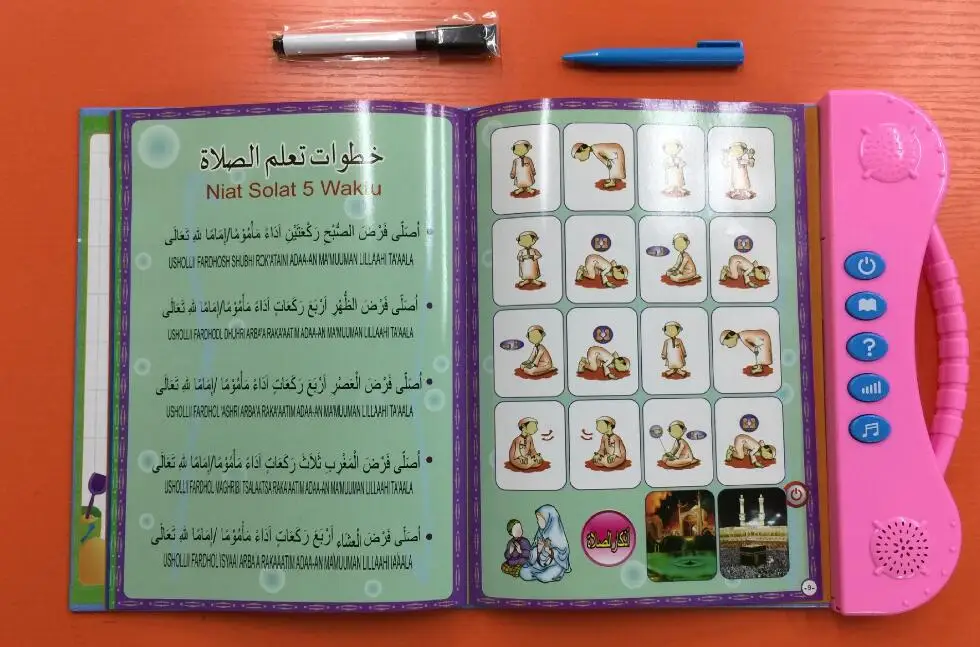 خطوات تعلم الصلاة
Niat Solat 5 Waktu
أُصَلِّى فَرْضَ الصُّبْحِ رَكْعَتَيْنِ أَدَاءً مَأْمُوْمًا/إِمَامًا لِلّٰهِ تَعَالَى
USHOLLII FARDHOSH SHUBHI ROK'ATAINI ADAA-AN MA'MUUMAN LILLAAHI TA'AALA
أُصَلِّى فَرْضَ الظُّهْرِ أَرْبَعَ رَكَعَاتٍ أَدَاءً مَأْمُوْمًا/إِمَامًا لِلّٰهِ تَعَالَى
USHOLLII FARDHODL DHUHRI ARBA'A RAKA'AATIM ADAA-AN MA'MUUMAN LILLAAHI TA'AALA
أُصَلِّى فَرْضَ الْعَصْرِ أَرْبَعَ رَكَعَاتٍ أَدَاءً مَأْمُوْمًا /إِمَامًا لِلّٰهِ تَعَالَى
USHOLLII FARDHOL 'ASHRI ARBA'A RAKA'AATIM ADAA-AN MA'MUUMAN LILLAAHI TA'AALA
أُصَلِّى فَرْضَ الْمَغْرِبِ ثَلَاثَ رَكَعَاتٍ أَدَاءً مَأْمُوْمًا/إِمَامًا لِلّٰهِ تَعَالَى
USHOLLII FARDHOL MAGHRIBI TSALAATSA RAKA'AATIM ADAA-AN MA'MUUMAN LILLAAHI TA'AALA
أُصَلِّى فَرْضَ الْعِشَاءِ أَرْبَعَ رَكَعَاتٍ أَدَاءً مَأْمُوْمًا /إِمَامًا لِلّٰهِ تَعَالَى
USHOLLII FARDHOL ISYAAI ARBA'A RAKA'AATIM ADAA-AN MA'MUUMAN LILLAAHI TA'AALA
أذكار الصلاة
-9-